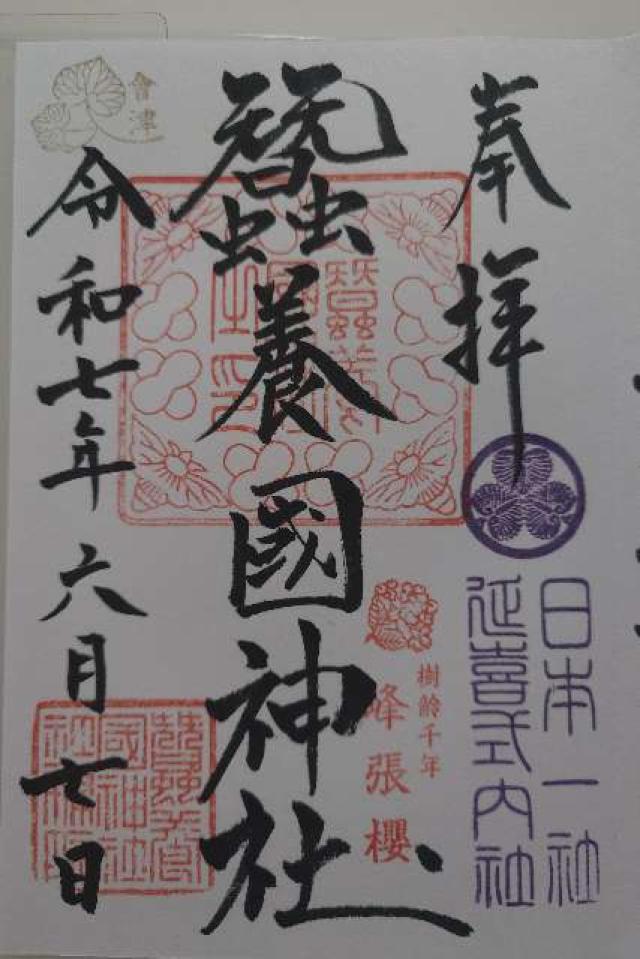 奉拝
日本一社
延喜式内社
樹齢千年
峰張櫻
蠶養國神社
會津
令和七年六月七日